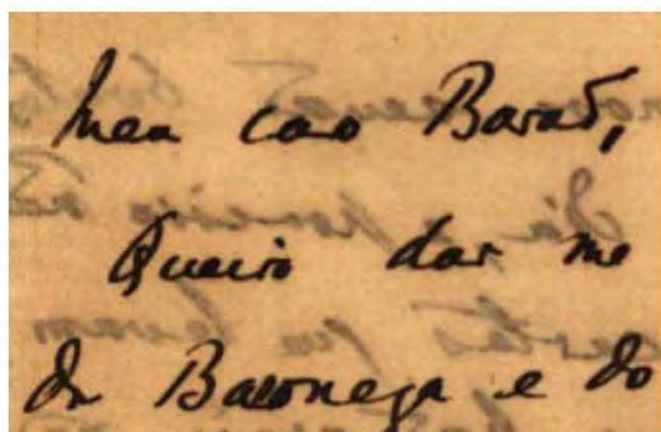 Meu caro Barão,
Queira dar me
da Baroneza e do